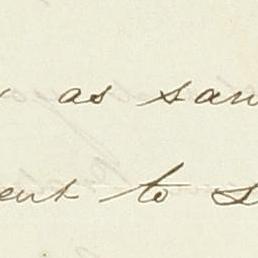 as san
ent to s